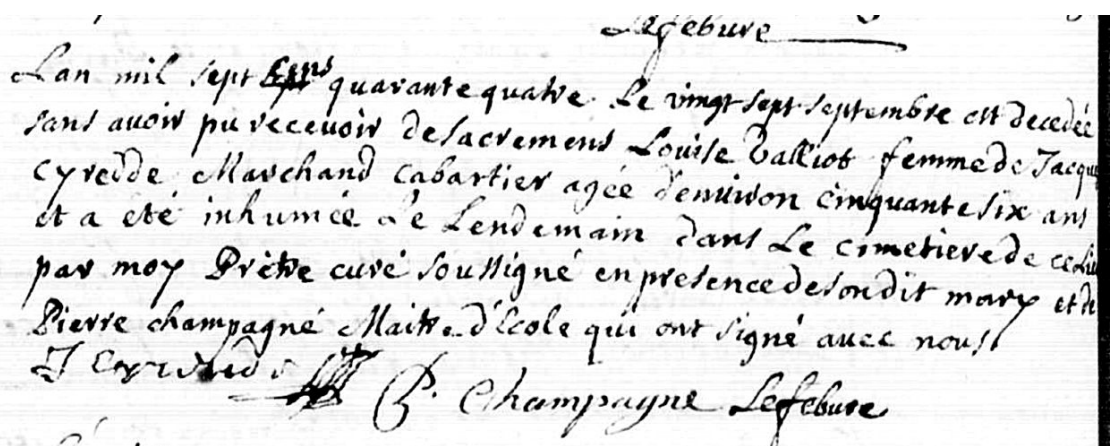 Lefebure
Lan mil sept cens quarante quatre Le vingt sept septembre est decedée
sans avoir pu recevoir de sacremens Louise Valliot femme de Jacque
Cyredde Marchand Cabartier agée d'environ cinquante six ans
et a été inhumée Le Lendemain dans Le cimetiere de ce Lieu
par moy Prêtre curé soussigné en presence de son dit mary et de
Pierre champagne Maitre d'Ecole qui ont signé avec nous
P. Champagne Lefebure